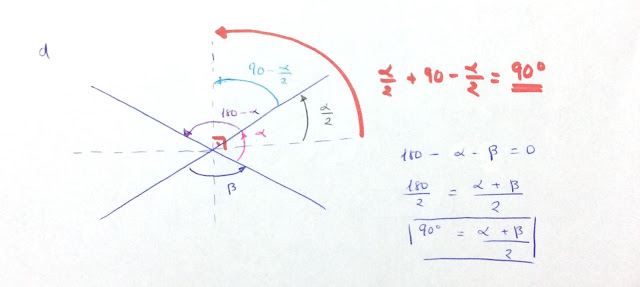 d
90 - α/2
180 - α
α
α/2
β
α/2 + 90 - α/2 = 90°
180 - α - β = 0
180/2 = α + β/2
90° = α + β/2